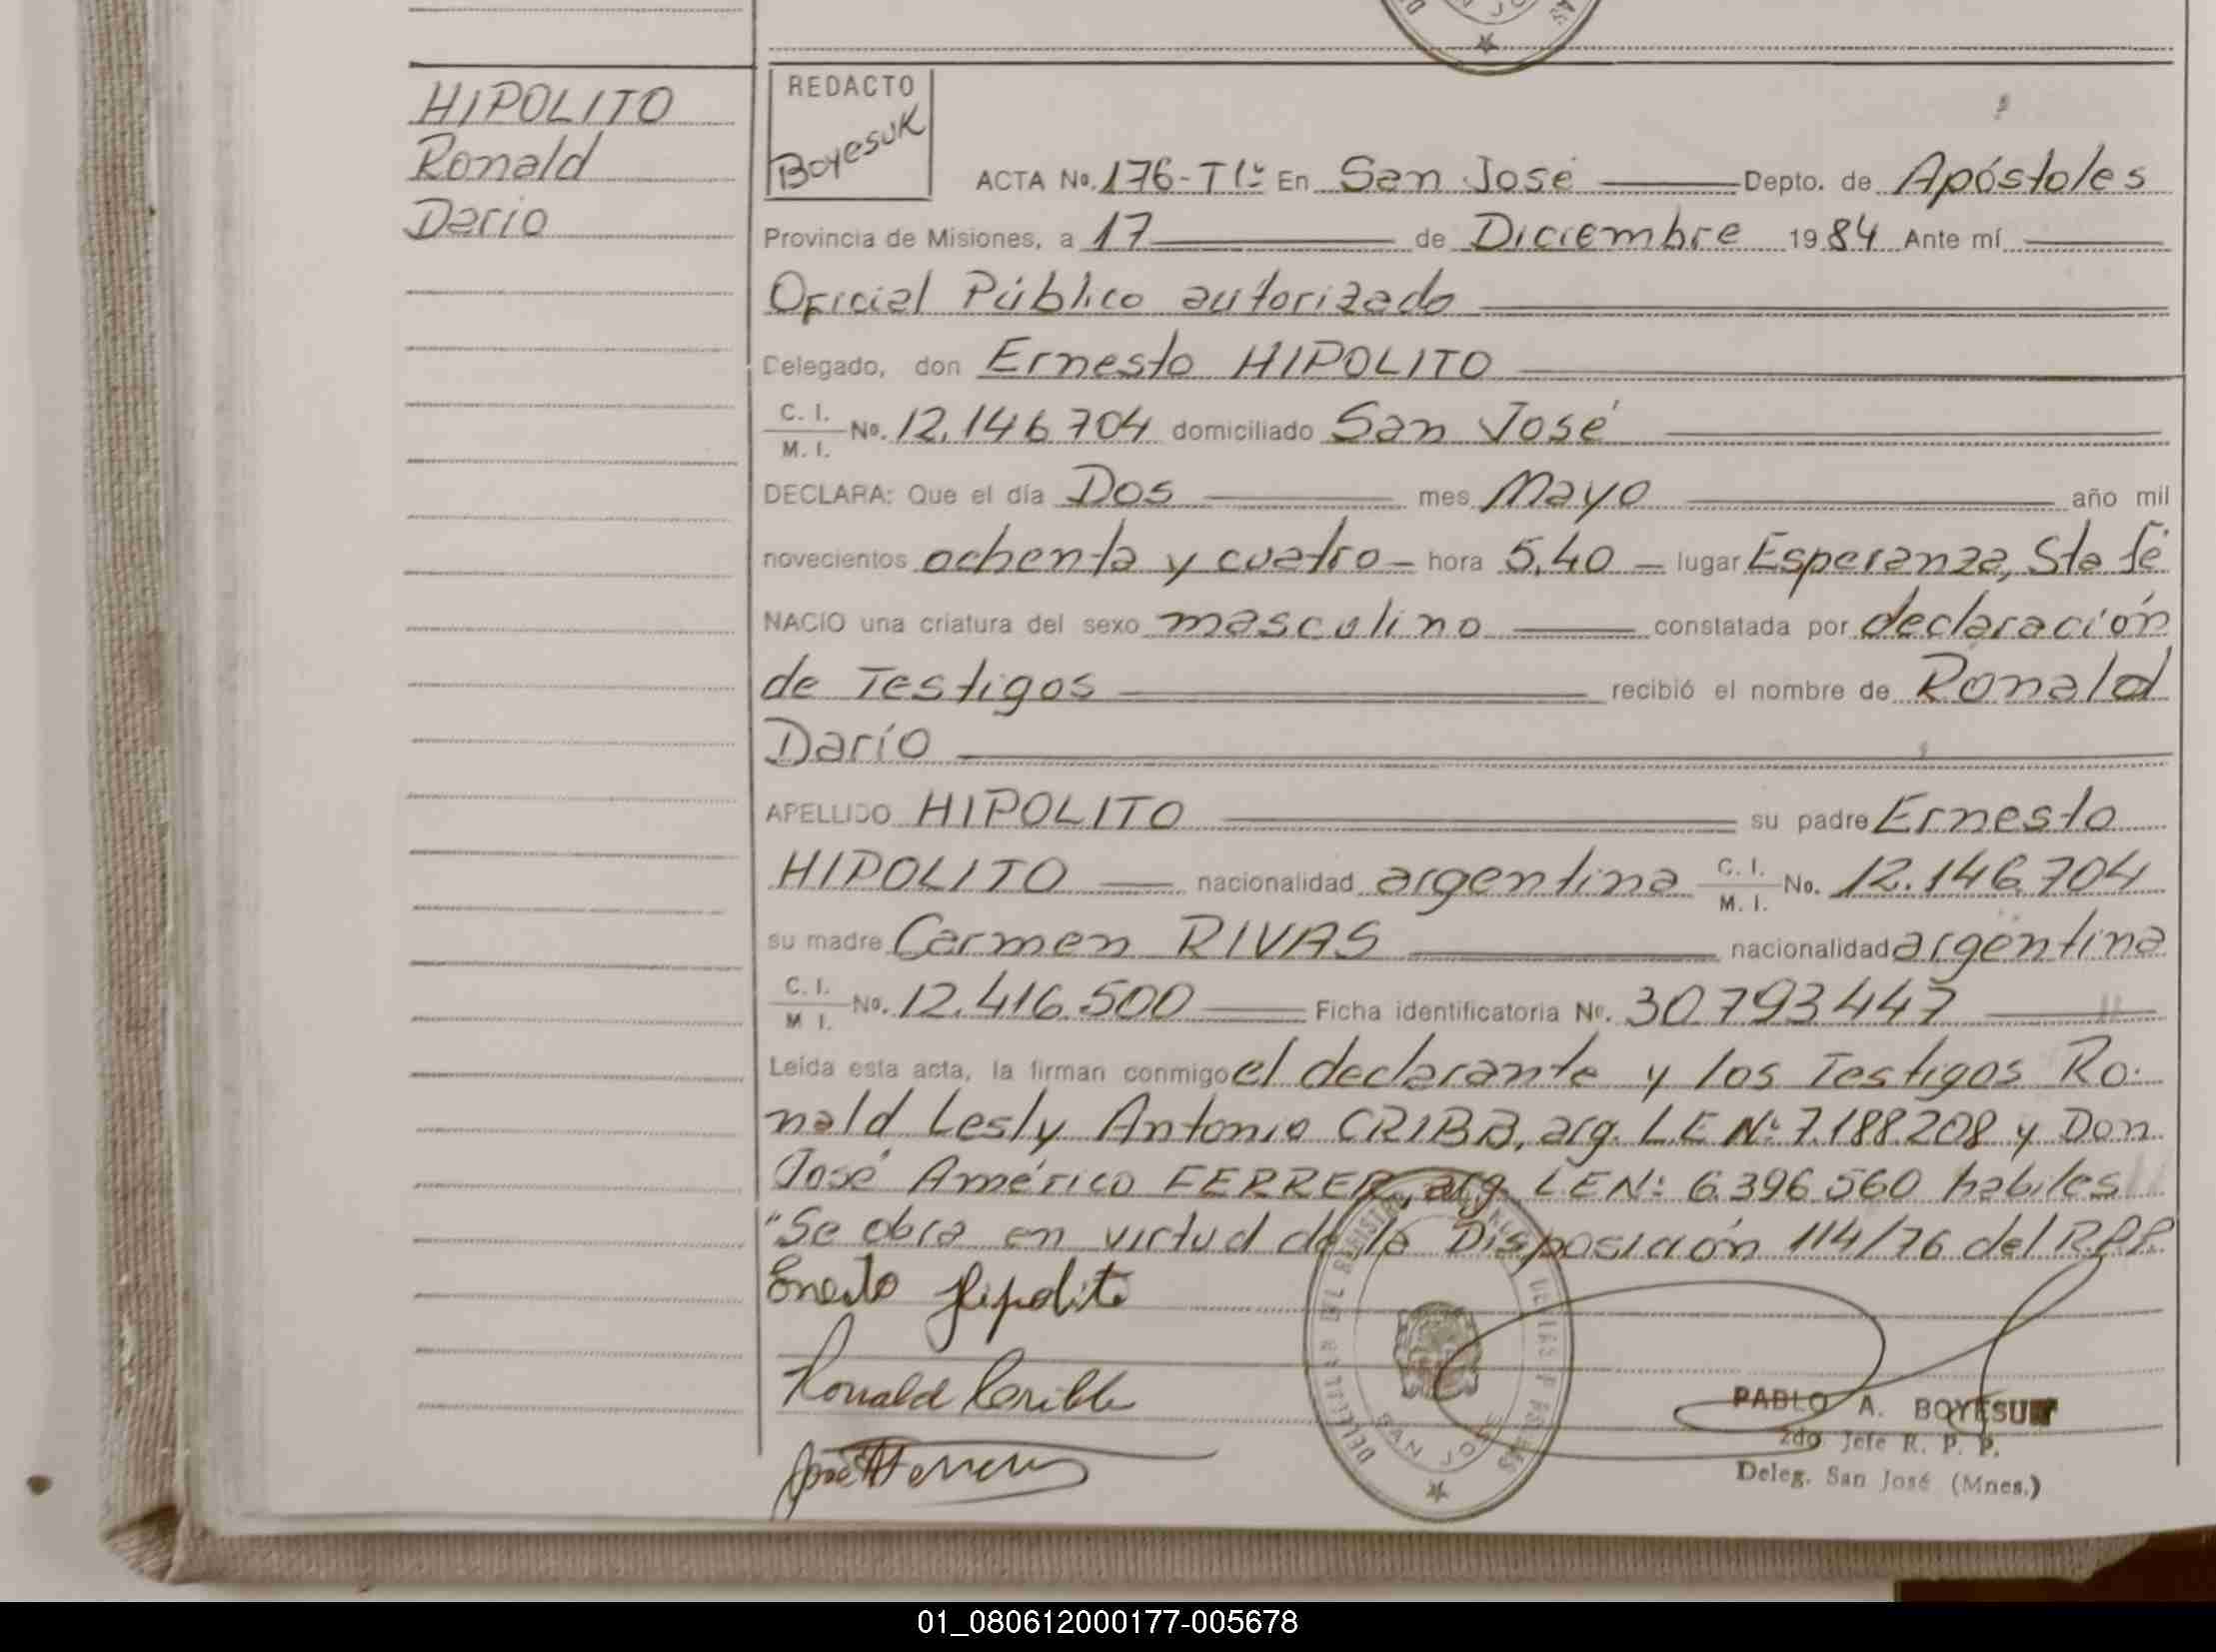 HIPOLITO
Ronald
Dario
REDACTO
Boyesuk
ACTA No. 176-T1º En San José Depto. de Apóstoles
Provincia de Misiones, a 17 de Diciembre 1984 Ante mí
Oficial Público autorizado
Delegado, don Ernesto HIPOLITO
C. I. / M. I. No. 12.146.704 domiciliado San José
DECLARA: Que el día Dos mes Mayo año mil
novecientos ochenta y cuatro - hora 5,40 - lugar Esperanza, Sta fé
NACIO una criatura del sexo masculino constatada por declaración
de Testigos recibió el nombre de Ronald
Darío
APELLIDO HIPOLITO su padre Ernesto
HIPOLITO nacionalidad argentina C. I. / M. I. No. 12.146.704
su madre Carmen RIVAS nacionalidad argentina
C. I. / M I. No. 12.416.500 Ficha identificatoria No. 30793447
Leída esta acta, la firman conmigo el declarante y los Testigos Ro-
nald Lesly Antonio CRIBB, arg. L.E Nº 7.188.208 y Don
José Américo FERRER, arg. L.E N: 6.396.560 habiles
"Se obra en virtud de la Disposición 114/76 del R.P.P.
Ernesto Hipolito
Ronald Cribb
José A Ferrer
SAN JOSE
PABLO A. BOYESUK
2do Jefe R. P. P.
Deleg. San José (Mnes.)
01_080612000177-005678